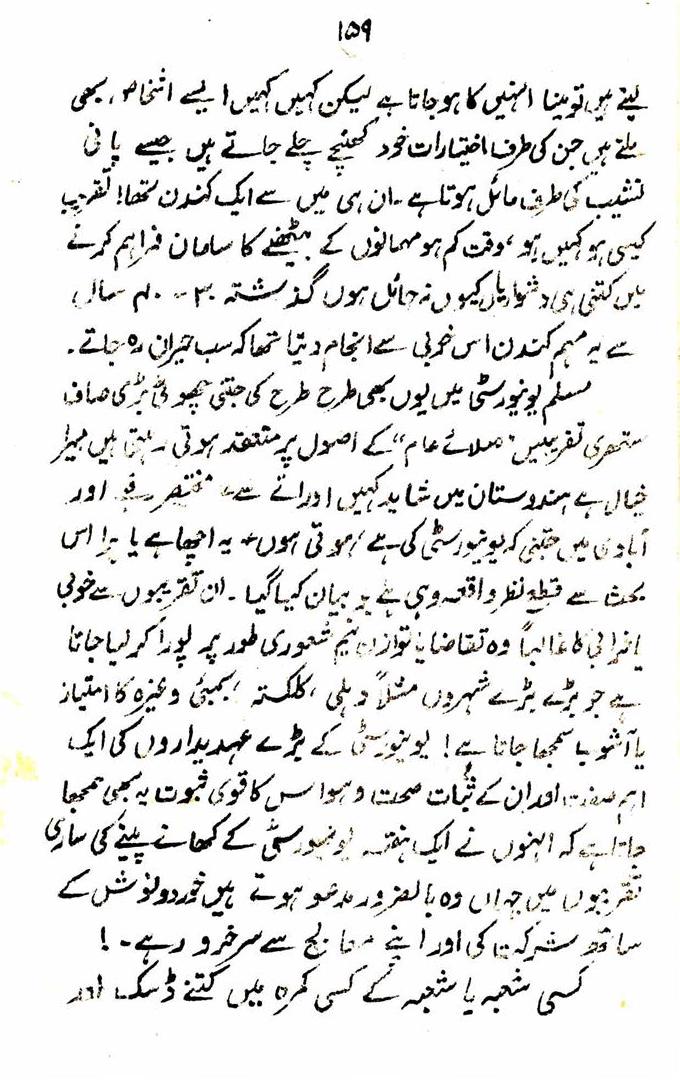 ۱۵۹
لیتے ہیں تو مینا انہیں کا ہو جاتا ہے لیکن کہیں کہیں ایسے اشخاص بھی
ملتے ہیں جن کی طرف اختیارات خود کھنچے چلے جاتے ہیں جیسے پانی
نشیب کی طرف مائل ہوتا ہے۔ ان ہی میں سے ایک کندن تھا! تقریب
کیسی ہو کہیں ہو، وقت کم ہو مہمانوں کے بیٹھنے کا سامان فراہم کرنے
میں کتنی ہی دشواریاں کیوں نہ حائل ہوں گذشتہ ۳۰۔۴۰ سال
سے یہ مہم کندن اس خوبی سے انجام دیتا تھا کہ سب حیران رہ جاتے۔
مسلم یونیورسٹی میں یوں بھی طرح طرح کی جتنی چھوٹی بڑی صاف
ستھری تقریبیں "صلائے عام" کے اصول پر منعقد ہوتی رہتی ہیں میرا
خیال ہے ہندوستان میں شاید کہیں اور اتنے سے مختصر رقبہ اور
آبادی میں جتنی کہ یونیورسٹی کی ہے ہوتی ہوں۔ یہ اچھا ہے یا برا اس
بحث سے قطع نظر واقعہ وہی ہے جو بیان کیا گیا۔ ان تقریبوں سے خوبی
یا خرابی کا غالباً وہ تقاضا یا توازن نیم شعوری طور پر پورا کر لیا جاتا
ہے جو بڑے بڑے شہروں مثلاً دہلی، کلکتہ، بمبئی وغیرہ کا امتیاز
یا آشوب سمجھا جاتا ہے! یونیورسٹی کے بڑے عہدیداروں کی ایک
اہم صفت اور ان کے ثبات صحت و ہواس کا قوی ثبوت یہ بھی سمجھا
جاتا ہے کہ انہوں نے ایک ہفتہ یونیورسٹی کے کھانے پینے کی ساری
تقریبوں میں جہاں وہ بالضرور مدعو ہوتے ہیں خورد و نوش کے
ساتھ شرکت کی اور اپنے معالج سے سرخرو رہے۔!
کسی شعبہ یا شعبہ کے کسی کمرہ میں کتنے ڈسک اور